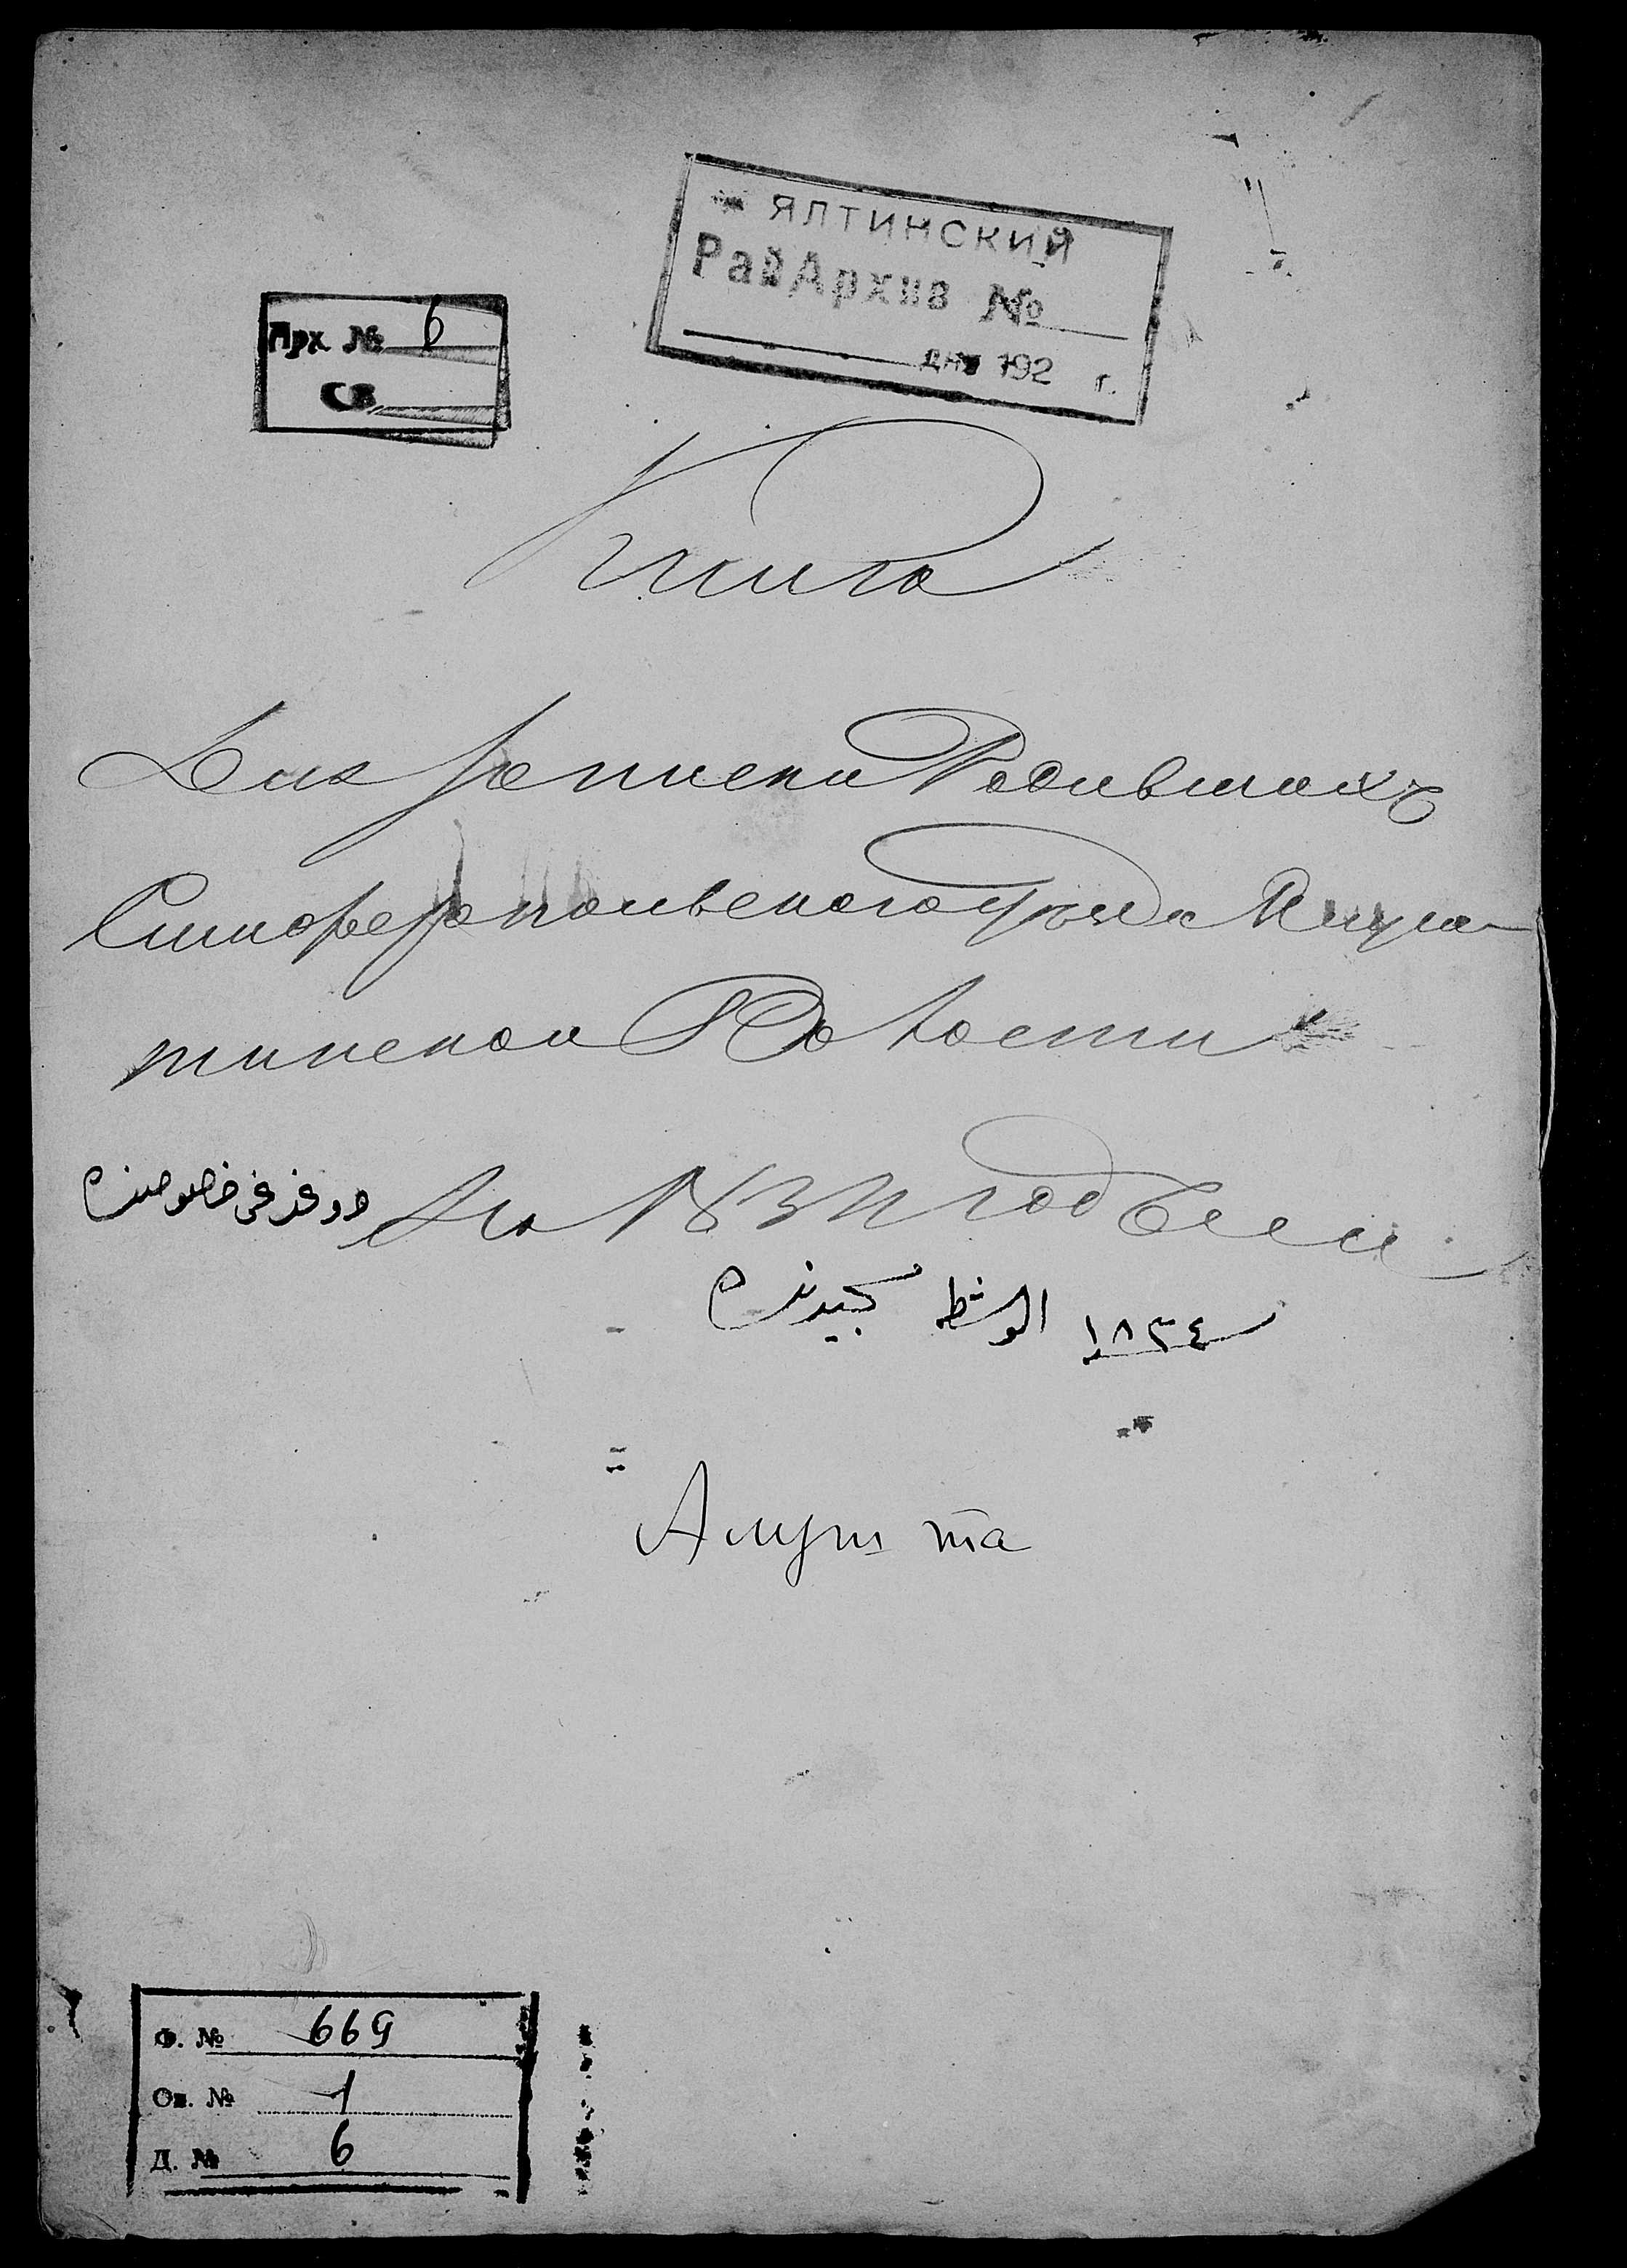 ЯЛТИНСКИЙ
РайАрхив №
дня 192 г.
Арх. № 6
св.
Книга
Для записки Родившихъ
Симферопольскаго уѣзда Алуш-
тинской Волости
На 1834 годъ
١٨٣٤
Алушта
Ф. № 669
Оп. № 1
Д. № 6